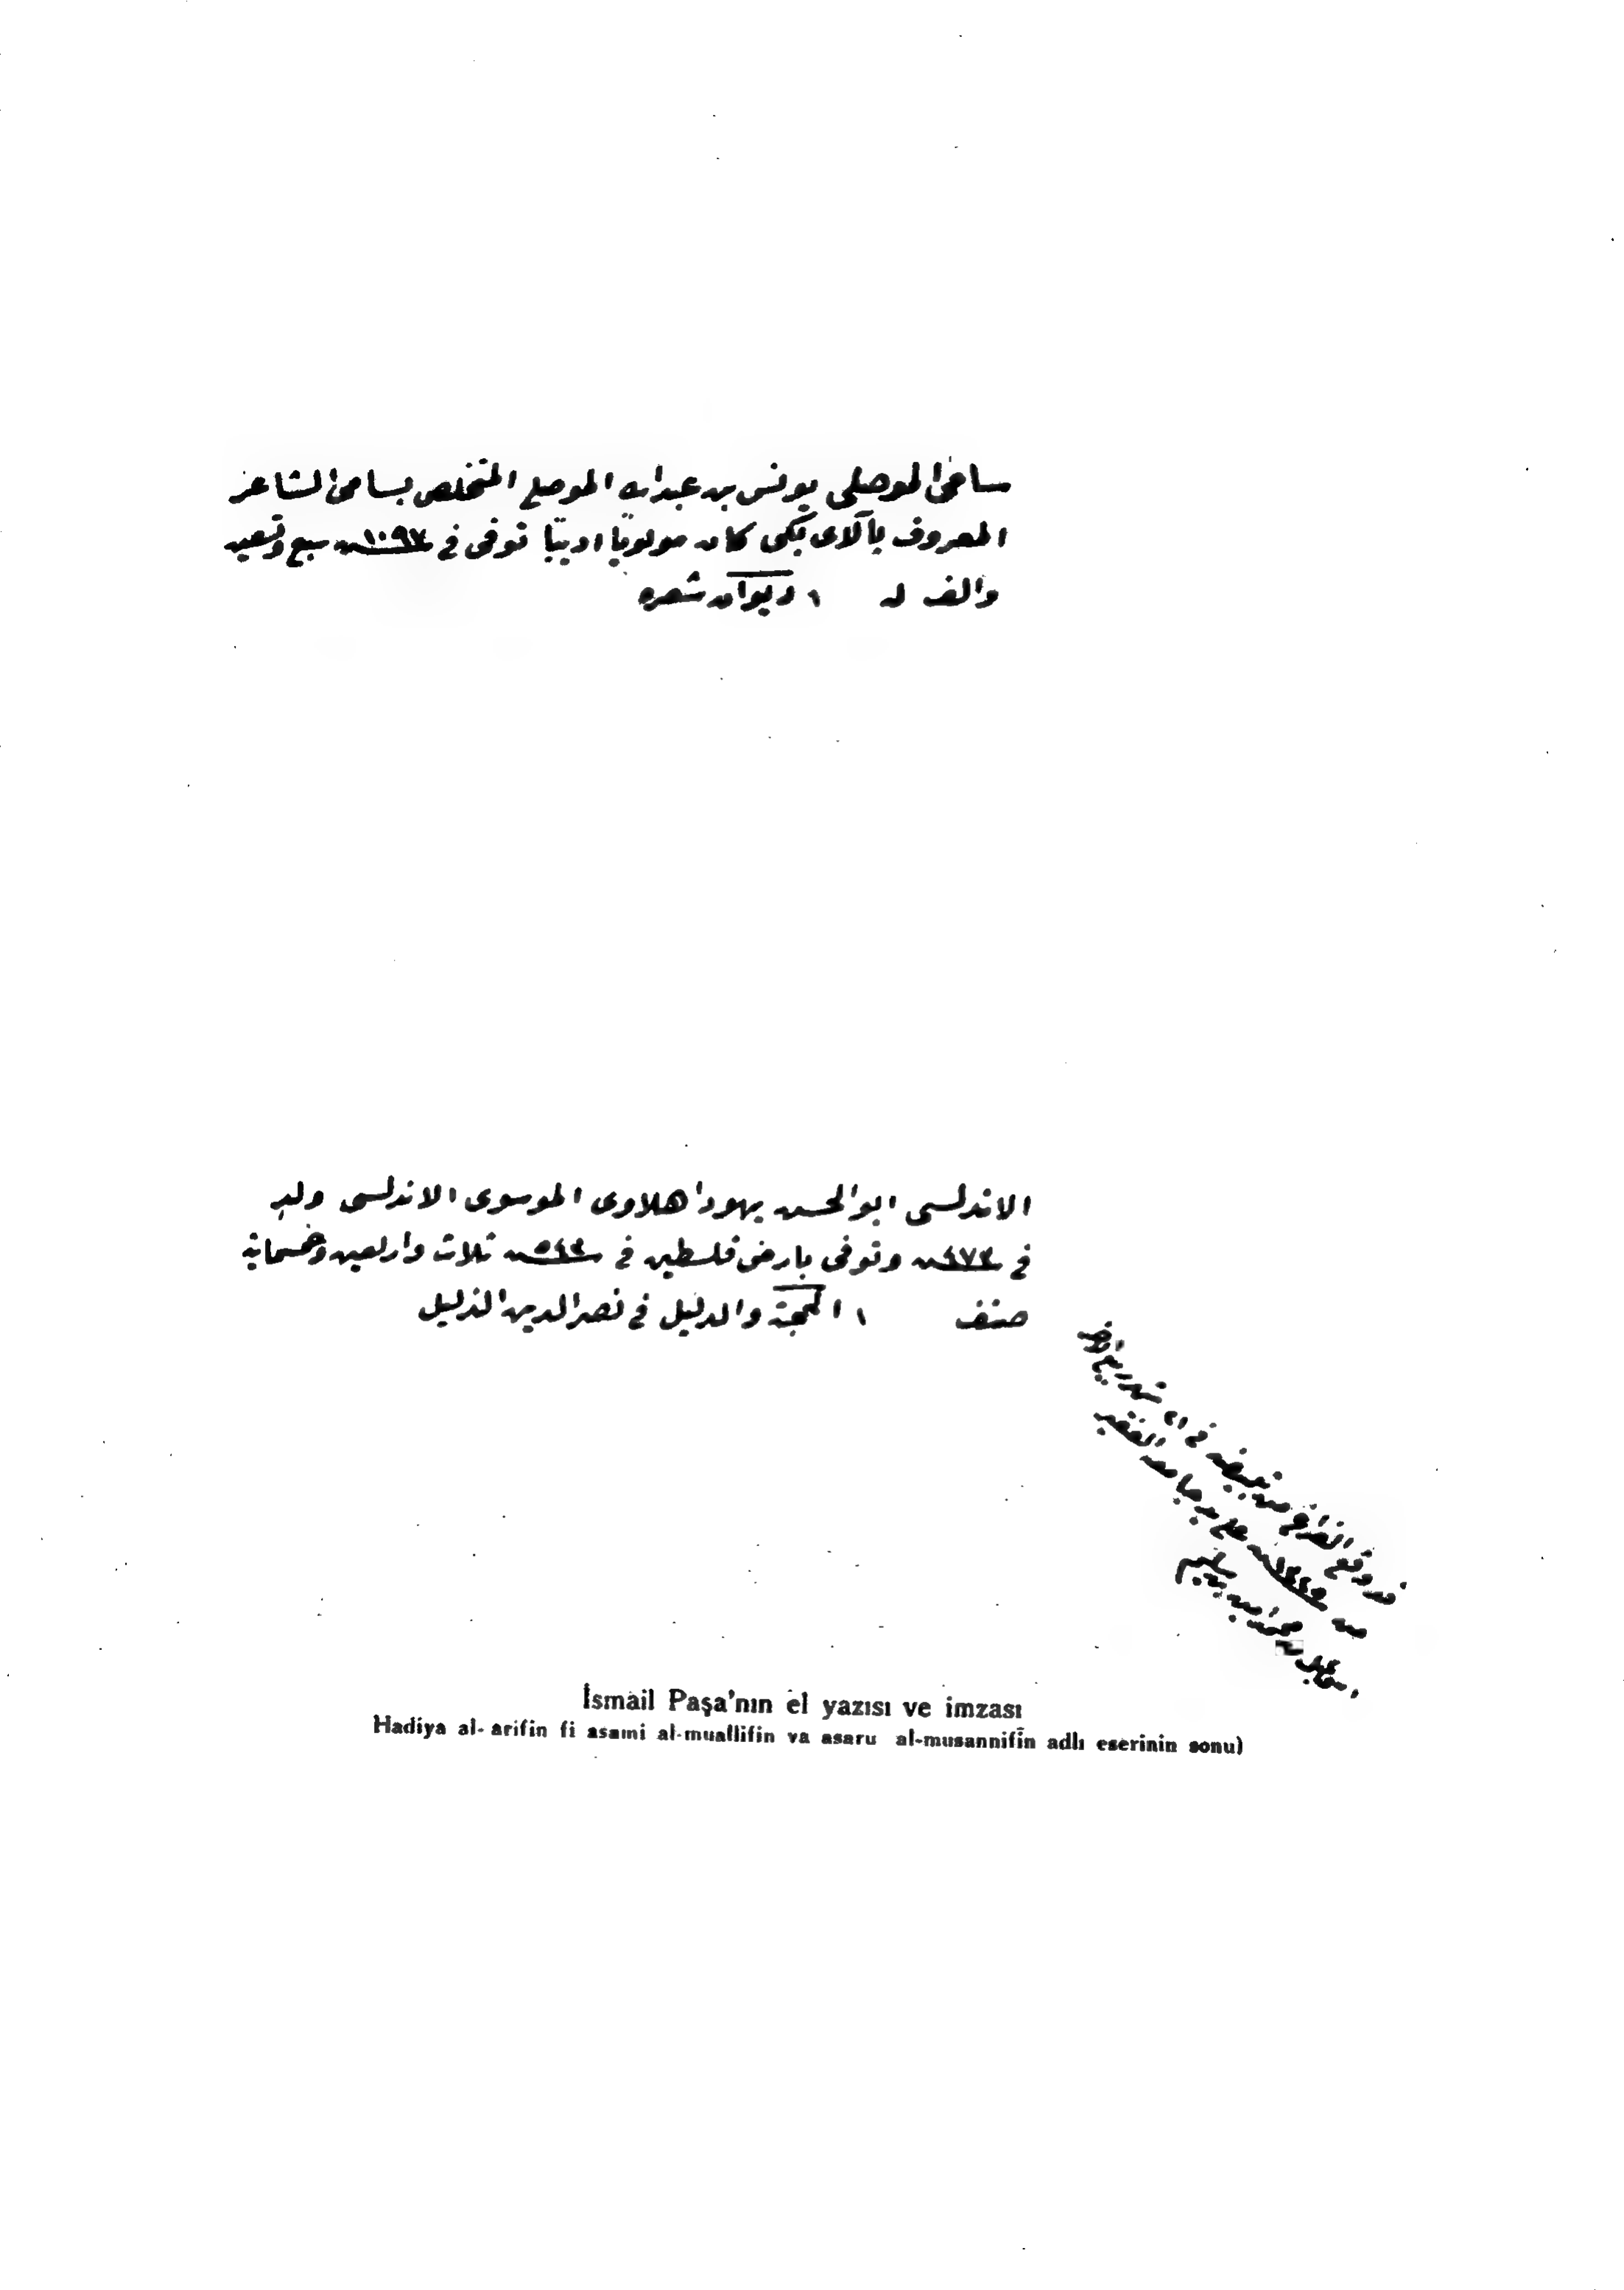 سامى الموصلى يونس بن عبدالله الموصلى المتخلص بسامى الشاعر
المعروف بآلاى بكى كان مولويًا اديبًا توفى فى سنة ١٠٩٧ سبع وتسعين
والف له ١ ديوان شعره
الاندلسى ابو الحسن يهودا هلاوى الموسوى الاندلسى ولد
فى سنة ٤٧٣ وتوفى بارض فلسطين فى سنة ٥٤٣ ثلاث واربعين وخمسمائة
صنف ١ الحجة والدليل فى نصر الدين الذليل
قد وقع الفراغ من تبييضه فى ٢١ شهر ربيع
من سنة على يد جامعه الفقير
اسماعيل بن محمد امين بن سليم
İsmâil Paşa'nın el yazısı ve imzası
Hadiya al-arifin fi asami al-muallifin va asaru al-musannifîn adlı eserinin sonu)